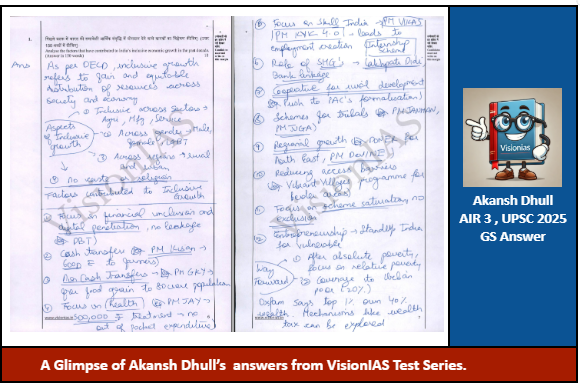 1. पिछले दशक में भारत की समावेशी आर्थिक संवृद्धि में योगदान देने वाले कारकों का विश्लेषण कीजिए। (उत्तर 150 शब्दों में दीजिए)
Analyse the factors that have contributed to India's inclusive economic growth in the past decade.
(Answer in 150 words) 10
Ans As per OECD, inclusive growth
refers to fair and equitable
distribution of resources across
society and economy
① Inclusive across sectors →
Agri, Mfg, Service
Aspects of Inclusive growth
② Across gender → Male,
female, LGBT
③ Across regions → rural
and urban
④ No caste, religion
Factors contributed to Inclusive
Growth
① Focus on financial inclusion and
digital penetration, no leakage
DBT)
② Cash transfer PM Kisan →
6000 ₹ to farmers)
③ Non Cash Transfers → PMGKY →
free food grain to 80 crore population
④ Focus on health PM JAY →
500,000 ₹ treatment → no
out of pocket expenditure
⑤ Focus on Skill India → PM VIKAS
PM KVK 4.0 → leads to
employment creation Internship
Scheme
⑥ Role of SHG's →
Bank linkage
⑦ Cooperative for rural development
Push to PAC's formalisation)
⑧ Schemes for Tribals PM JANMAN,
PM JUGA)
⑨ Regional growth for
North East, PM DevINE)
⑩ Reducing access barriers
Vibrant Village Programme for
border areas)
⑪ Focus on scheme saturation → no
exclusion
⑫ Entrepreneurship → StandUp India
for vulnerable
Way Forward
① After absolute poverty,
focus on relative poverty
② Coverage to urban
poor (20%)
Oxfam says top 1% own 40%
wealth. Mechanisms like wealth
tax can be explored
VisionIAS
VisionIAS
Visionias
Akansh Dhull
AIR 3 , UPSC 2025
GS Answer
A Glimpse of Akansh Dhull's answers from VisionIAS Test Series.